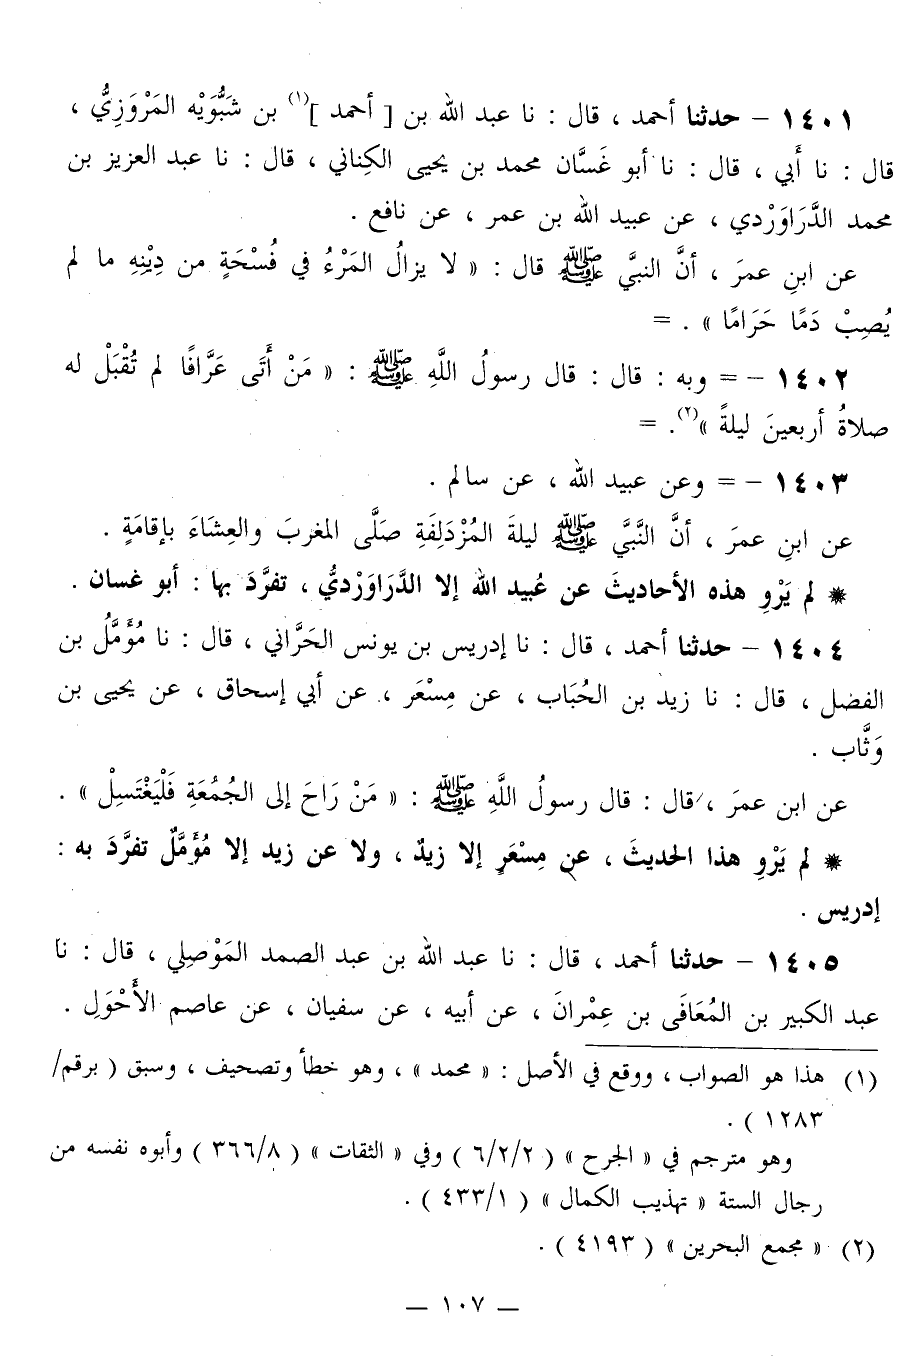 ١٤٠١ – حدثنا أحمد ، قال : نا عبد الله بن [ أحمد ](١) بن شَبُّوَيْه المَرْوَزِيُّ ،
قال : نا أَبي ، قال : نا أبو غَسَّان محمد بن يحيى الكِناني ، قال : نا عبد العزيز بن
محمد الدَّرَاوَرْدي ، عن عبيد الله بن عمر ، عن نافع .
عن ابنِ عمرَ ، أنَّ النبيَّ ﷺ قال : « لا يزالُ المَرْءُ في فُسْحَةٍ من دِيْنِهِ ما لم
يُصِبْ دَمًا حَرَامًا » . =
١٤٠٢ – = وبه : قال : قال رسولُ اللَّهِ ﷺ : « مَنْ أَتَى عَرَّافًا لم تُقْبَلْ له
صلاةُ أربعينَ ليلةً »(٢). =
١٤٠٣ – = وعن عبيد الله ، عن سالم .
عن ابنِ عمرَ ، أنَّ النَّبيَّ ﷺ ليلةَ المُزْدَلِفَةِ صَلَّى المغربَ والعِشَاءَ بإقامَةٍ .
* لم يَرْوِ هذه الأحاديثَ عن عُبيد الله إلا الدَّرَاوَرْديُّ ، تفرَّدَ بها : أبو غسان .
١٤٠٤ – حدثنا أحمد ، قال : نا إدريس بن يونس الحَرَّاني ، قال : نا مُؤَمَّلُ بن
الفضل ، قال : نا زيد بن الحُبَاب ، عن مِسْعَر ، عن أبي إسحاق ، عن يحيى بن
وَثَّاب .
عن ابن عمرَ ، قال : قال رسولُ اللَّهِ ﷺ : « مَنْ رَاحَ إلى الجُمُعَةِ فَلْيَغْتَسِلْ » .
* لم يَرْوِ هذا الحديثَ ، عن مِسْعَرٍ إلا زيدٌ ، ولا عن زيد إلا مُؤَمَّلٌ تفرَّدَ به :
إدريس .
١٤٠٥ – حدثنا أحمد ، قال : نا عبد الله بن عبد الصمد المَوْصِلي ، قال : نا
عبد الكبير بن المُعَافَى بن عِمْرانَ ، عن أبيه ، عن سفيان ، عن عاصم الأَحْوَلِ .
(١) هذا هو الصواب ، ووقع في الأصل : « محمد » ، وهو خطأ وتصحيف ، وسبق ( برقم/
١٢٨٣ ) .
وهو مترجم في « الجرح » ( ٦/٢/٢ ) وفي « الثقات » ( ٣٦٦/٨ ) وأبوه نفسه من
رجال الستة « تهذيب الكمال » ( ٤٣٣/١ ) .
(٢) « مجمع البحرين » ( ٤١٩٣ ) .
— ١٠٧ —